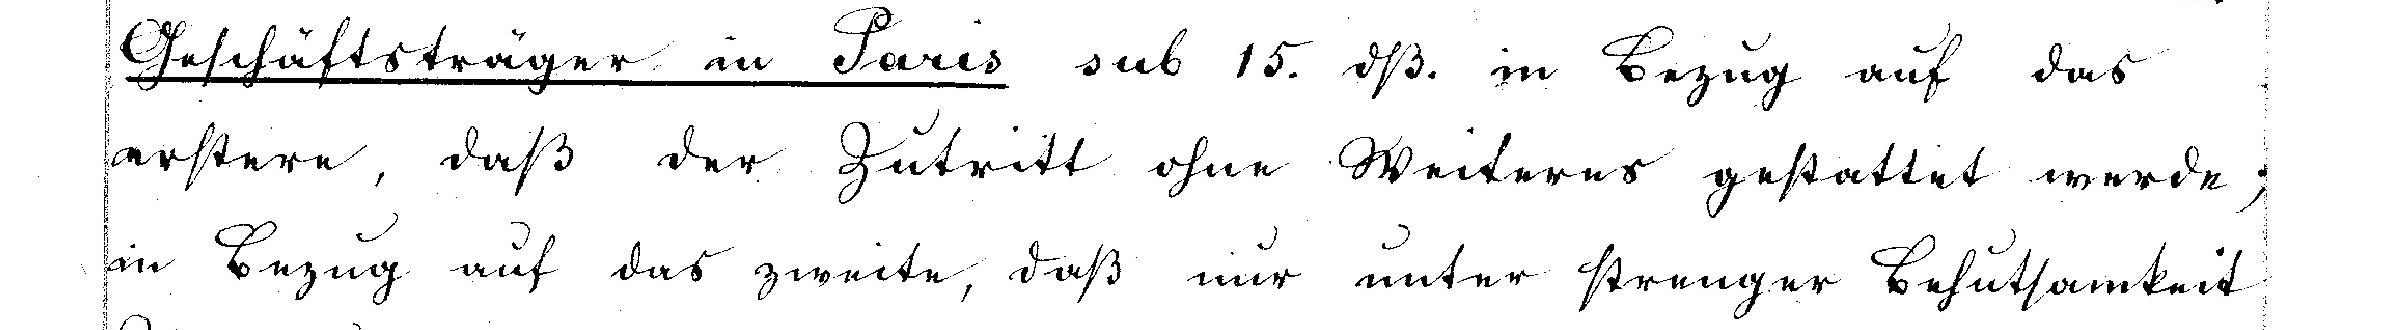 Geschäftsträger in Paris sub 15. dß. in Bezug auf das
erstere, daß der Zutritt ohne Weiteres gestattet werde;
in Bezug auf das zweite, daß nur unter strenger Behutsamkeit